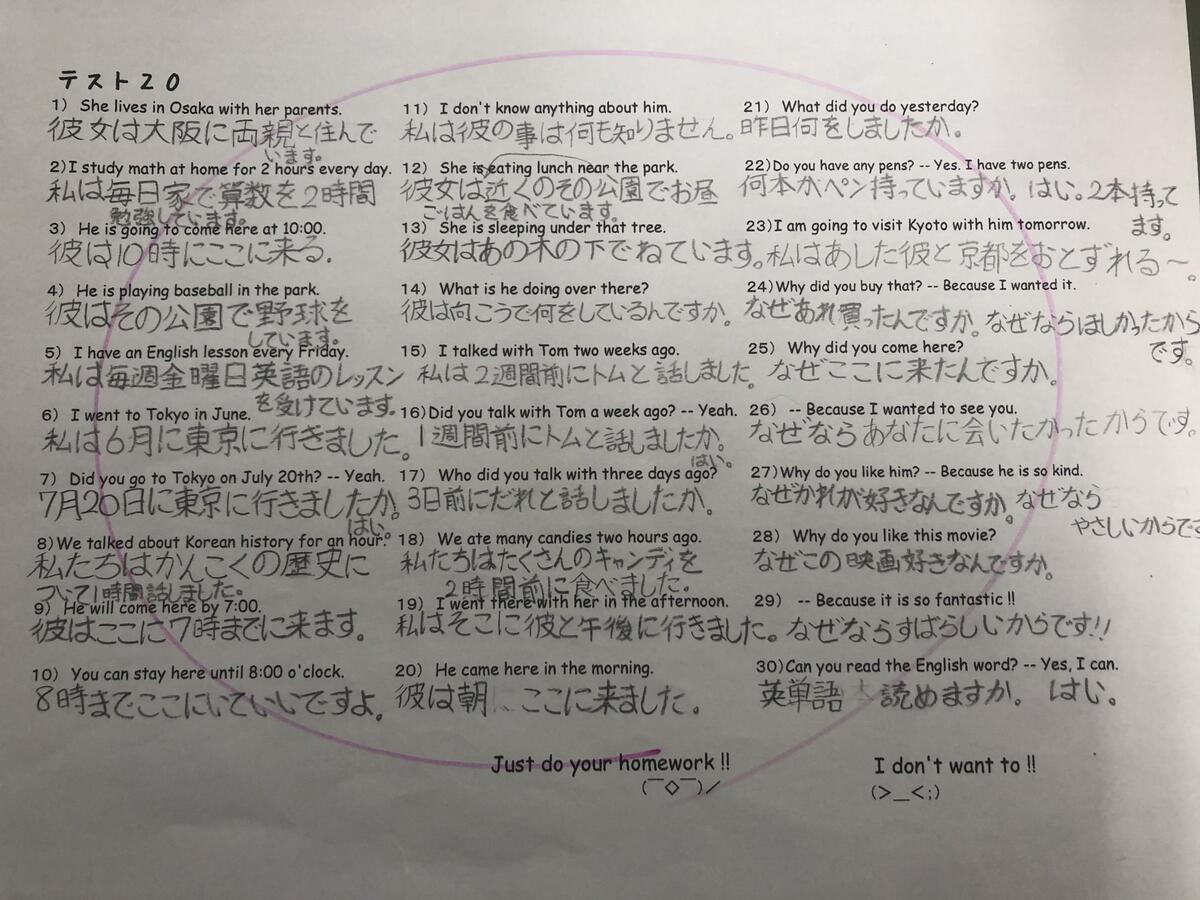 テスト20
1) She lives in Osaka with her parents.
彼女は大阪に両親と住んで
います。
2)I study math at home for 2 hours every day.
私は毎日家で算数を2時間
勉強しています。
3) He is going to come here at 10:00.
彼は10時にここに来る.
4) He is playing baseball in the park.
彼はその公園で野球を
しています。
5) I have an English lesson every Friday.
私は毎週金曜日英語のレッスン
を受けています。
6) I went to Tokyo in June.
私は6月に東京に行きました。
7) Did you go to Tokyo on July 20th? -- Yeah.
7月20日に東京に行きましたか。
はい。
8)We talked about Korean history for an hour.
私たちはかんこくの歴史に
ついて1時間話しました。
9) He will come here by 7:00.
彼はここに7時までに来ます。
10) You can stay here until 8:00 o'clock.
8時までここにいていいですよ。
11) I don't know anything about him.
私は彼の事は何も知りません。
12) She is eating lunch near the park.
彼女は近くのその公園でお昼
ごはんを食べています。
13) She is sleeping under that tree.
彼女はあの木の下でねています。
14) What is he doing over there?
彼は向こうで何をしているんですか。
15) I talked with Tom two weeks ago.
私は2週間前にトムと話しました。
16)Did you talk with Tom a week ago? -- Yeah.
1週間前にトムと話しましたか。
はい。
17) Who did you talk with three days ago?
3日前にだれと話しましたか。
18) We ate many candies two hours ago.
私たちはたくさんのキャンディを
2時間前に食べました。
19) I went there with her in the afternoon.
私はそこに彼と午後に行きました。
20) He came here in the morning.
彼は朝、ここに来ました。
21) What did you do yesterday?
昨日何をしましたか。
22)Do you have any pens? -- Yes. I have two pens.
何本かペン持っていますか。はい。2本持って
ます。
23)I am going to visit Kyoto with him tomorrow.
私はあした彼と京都をおとずれる〜。
24)Why did you buy that? -- Because I wanted it.
なぜあれ買ったんですか。なぜならほしかったから
です。
25) Why did you come here?
なぜここに来たんですか。
26) -- Because I wanted to see you.
なぜならあなたに会いたかったからです。
27)Why do you like him? -- Because he is so kind.
なぜかれが好きなんですか。なぜなら
やさしいからです
28) Why do you like this movie?
なぜこの映画好きなんですか。
29) -- Because it is so fantastic !!
なぜならすばらしいからです!!
30)Can you read the English word? -- Yes, I can.
英単語 読めますか。はい。
Just do your homework !!
(￣◇￣)／
I don't want to !!
(>＿<;)